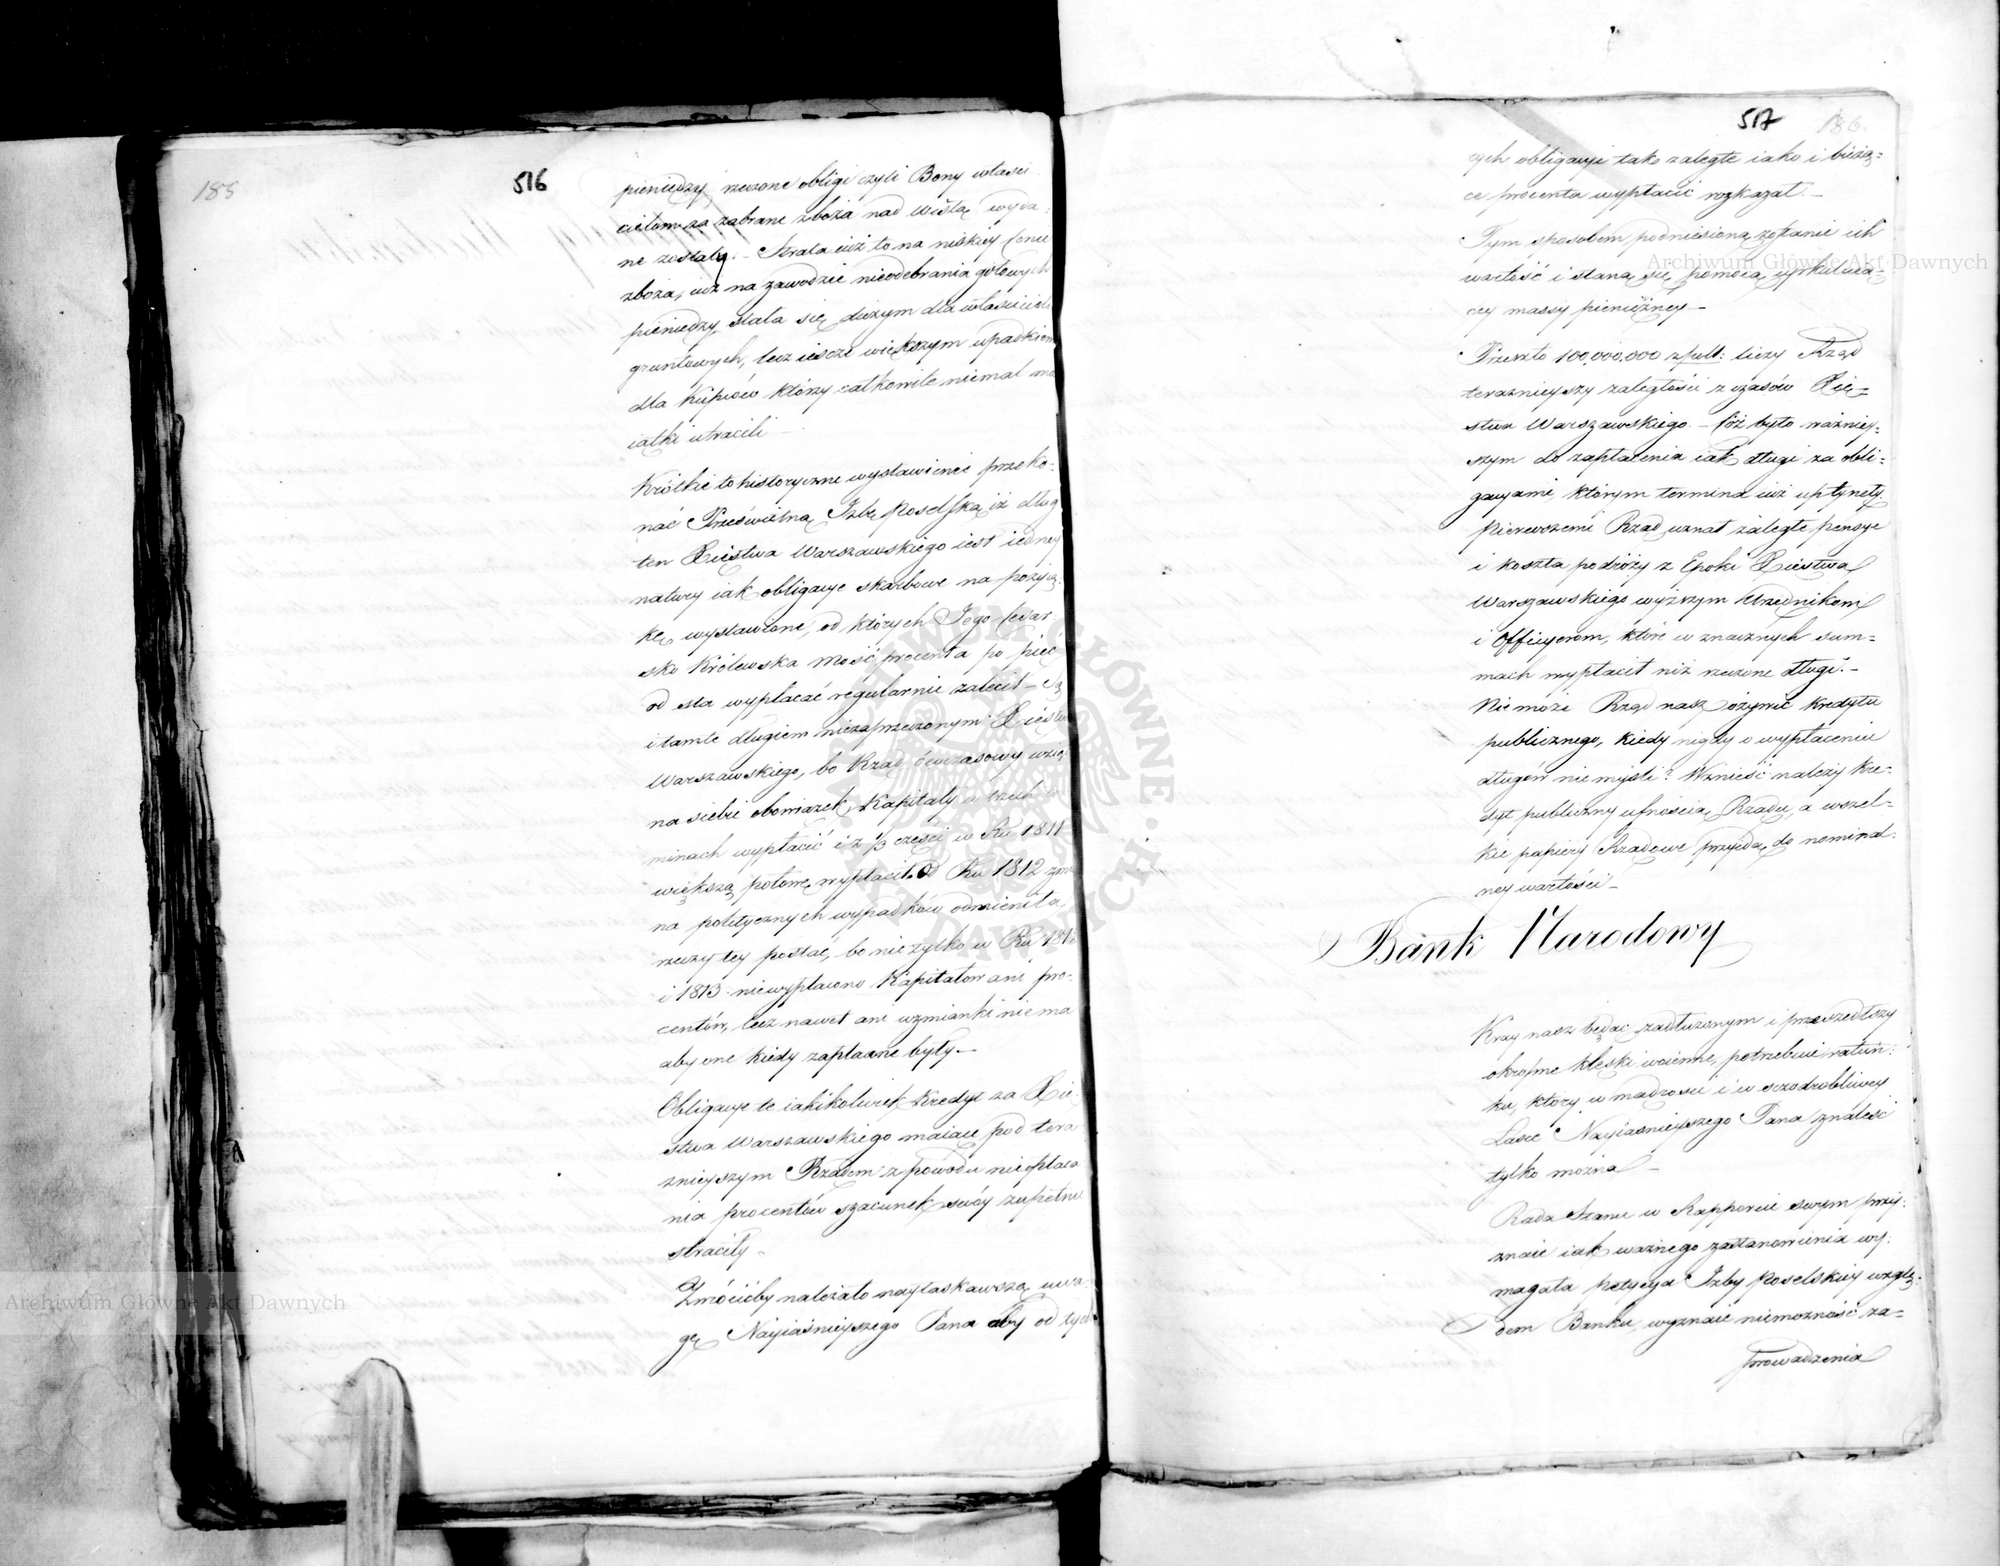 185
516
pieniędzy, rzeczone obligi czyli Bony właści-
cielom za zabrane zboża nad Wisłą wyda-
ne zostały. – Strata już to na niskiey Cenie
zboża, już na zawodzie nieodebrania gotowych
pieniędzy stała się dużym dla właścicieli
gruntowych, lecz ieszcze większym upadkiem
dla Kupców którzy całkowite niemal ma-
iątki utracili –
Krótkie to historyczne wystawienie przeko-
nać Prześwietną Izbę Poselską iż dług
ten Xięstwa Warszawskiego iest iedney
natury iak obligacye skarbowe na pożycz-
kę wystawione, od których Jego Cesar-
sko Królewska Mość procenta po pięć
od sta wypłacać regularnie zalecił – Są
i tamte długiem niezaprzeczonym Xięstwa
Warszawskiego, bo Rząd ówczasowy wziął
na siebie obowiązek, Kapitały w trzech
minach wypłacić i z ⅓ części w Ru 1811
większą połowę wypłacił. Od Ru 1812
na politycznych wypadków odmieniła
rzeczy tey postać, bo nie tylko w Ru 1812
i 1813 niewypłacono Kapitałow ani pro-
centów, lecz nawet ani wzmianki niema
aby one kiedy zapłacone były –
Obligacye te iakikolwiek Kredyt za Xię-
stwa Warszawskiego maiące pod tera
znieyszym Rządem z powodu nieopłaca
nia procentów szacunek swóy zupełnie
straciły –
Zwrócićby należało nayłaskawszą uwa-
gę Nayiaśnieyszego Pana aby od tych
517
186.
tych obligacyi tako zaległe iako i bieżą-
ce procenta wypłacić rozkazał. –
Tym sposobem podniesioną zostanie ich
wartość i staną się pomocą cyrkuluią-
cey massy pieniężney –
Przeszło 100,000,000 złpoll: liczy Rząd
teraznieyszy zaległości z czasów Xię-
stwa Warszawskiego. – Cóż było ważniey-
szym do zapłacenia iak długi za obli-
gacyami którym termina iuż upłynęły
Pierwszemi Rząd uznał zaległe pensye
i koszta podróży z Epoki Xięstwa
Warszawskiego wyższym Urzędnikom
i Officyerom, które w znacznych sum-
mach wypłacił niż rzeczone długi. –
Nie może Rząd nasz ożywić kredytu
publicznego, kiedy nigdy o wypłaceniu
długów nie myśli? Wznieść należy kre-
dyt publiczny ufnością Rządu, a wszel-
kie papiery Rządowe przyidą do nominal-
ney wartości –
Bank Narodowy
Kray nasz będąc zadłużonym i przeszedłszy
okropne klęski woienne, potrzebuie ratun-
ku, który w mądrości i w szczodrobliwey
Łasce Nayiaśnieyszego Pana znaleść
tylko można –
Rada Stanu w Rapporcie swym przy-
znaie iak ważnego zastanowienia wy-
magała petycya Izby Poselskiey wzglę-
dem Banku, wyznaie niemożność za-
prowadzenia
Archiwum Główne Akt Dawnych
Archiwum Główne Akt Dawnych
ARCHIWUM GŁÓWNE AKT DAWNYCH